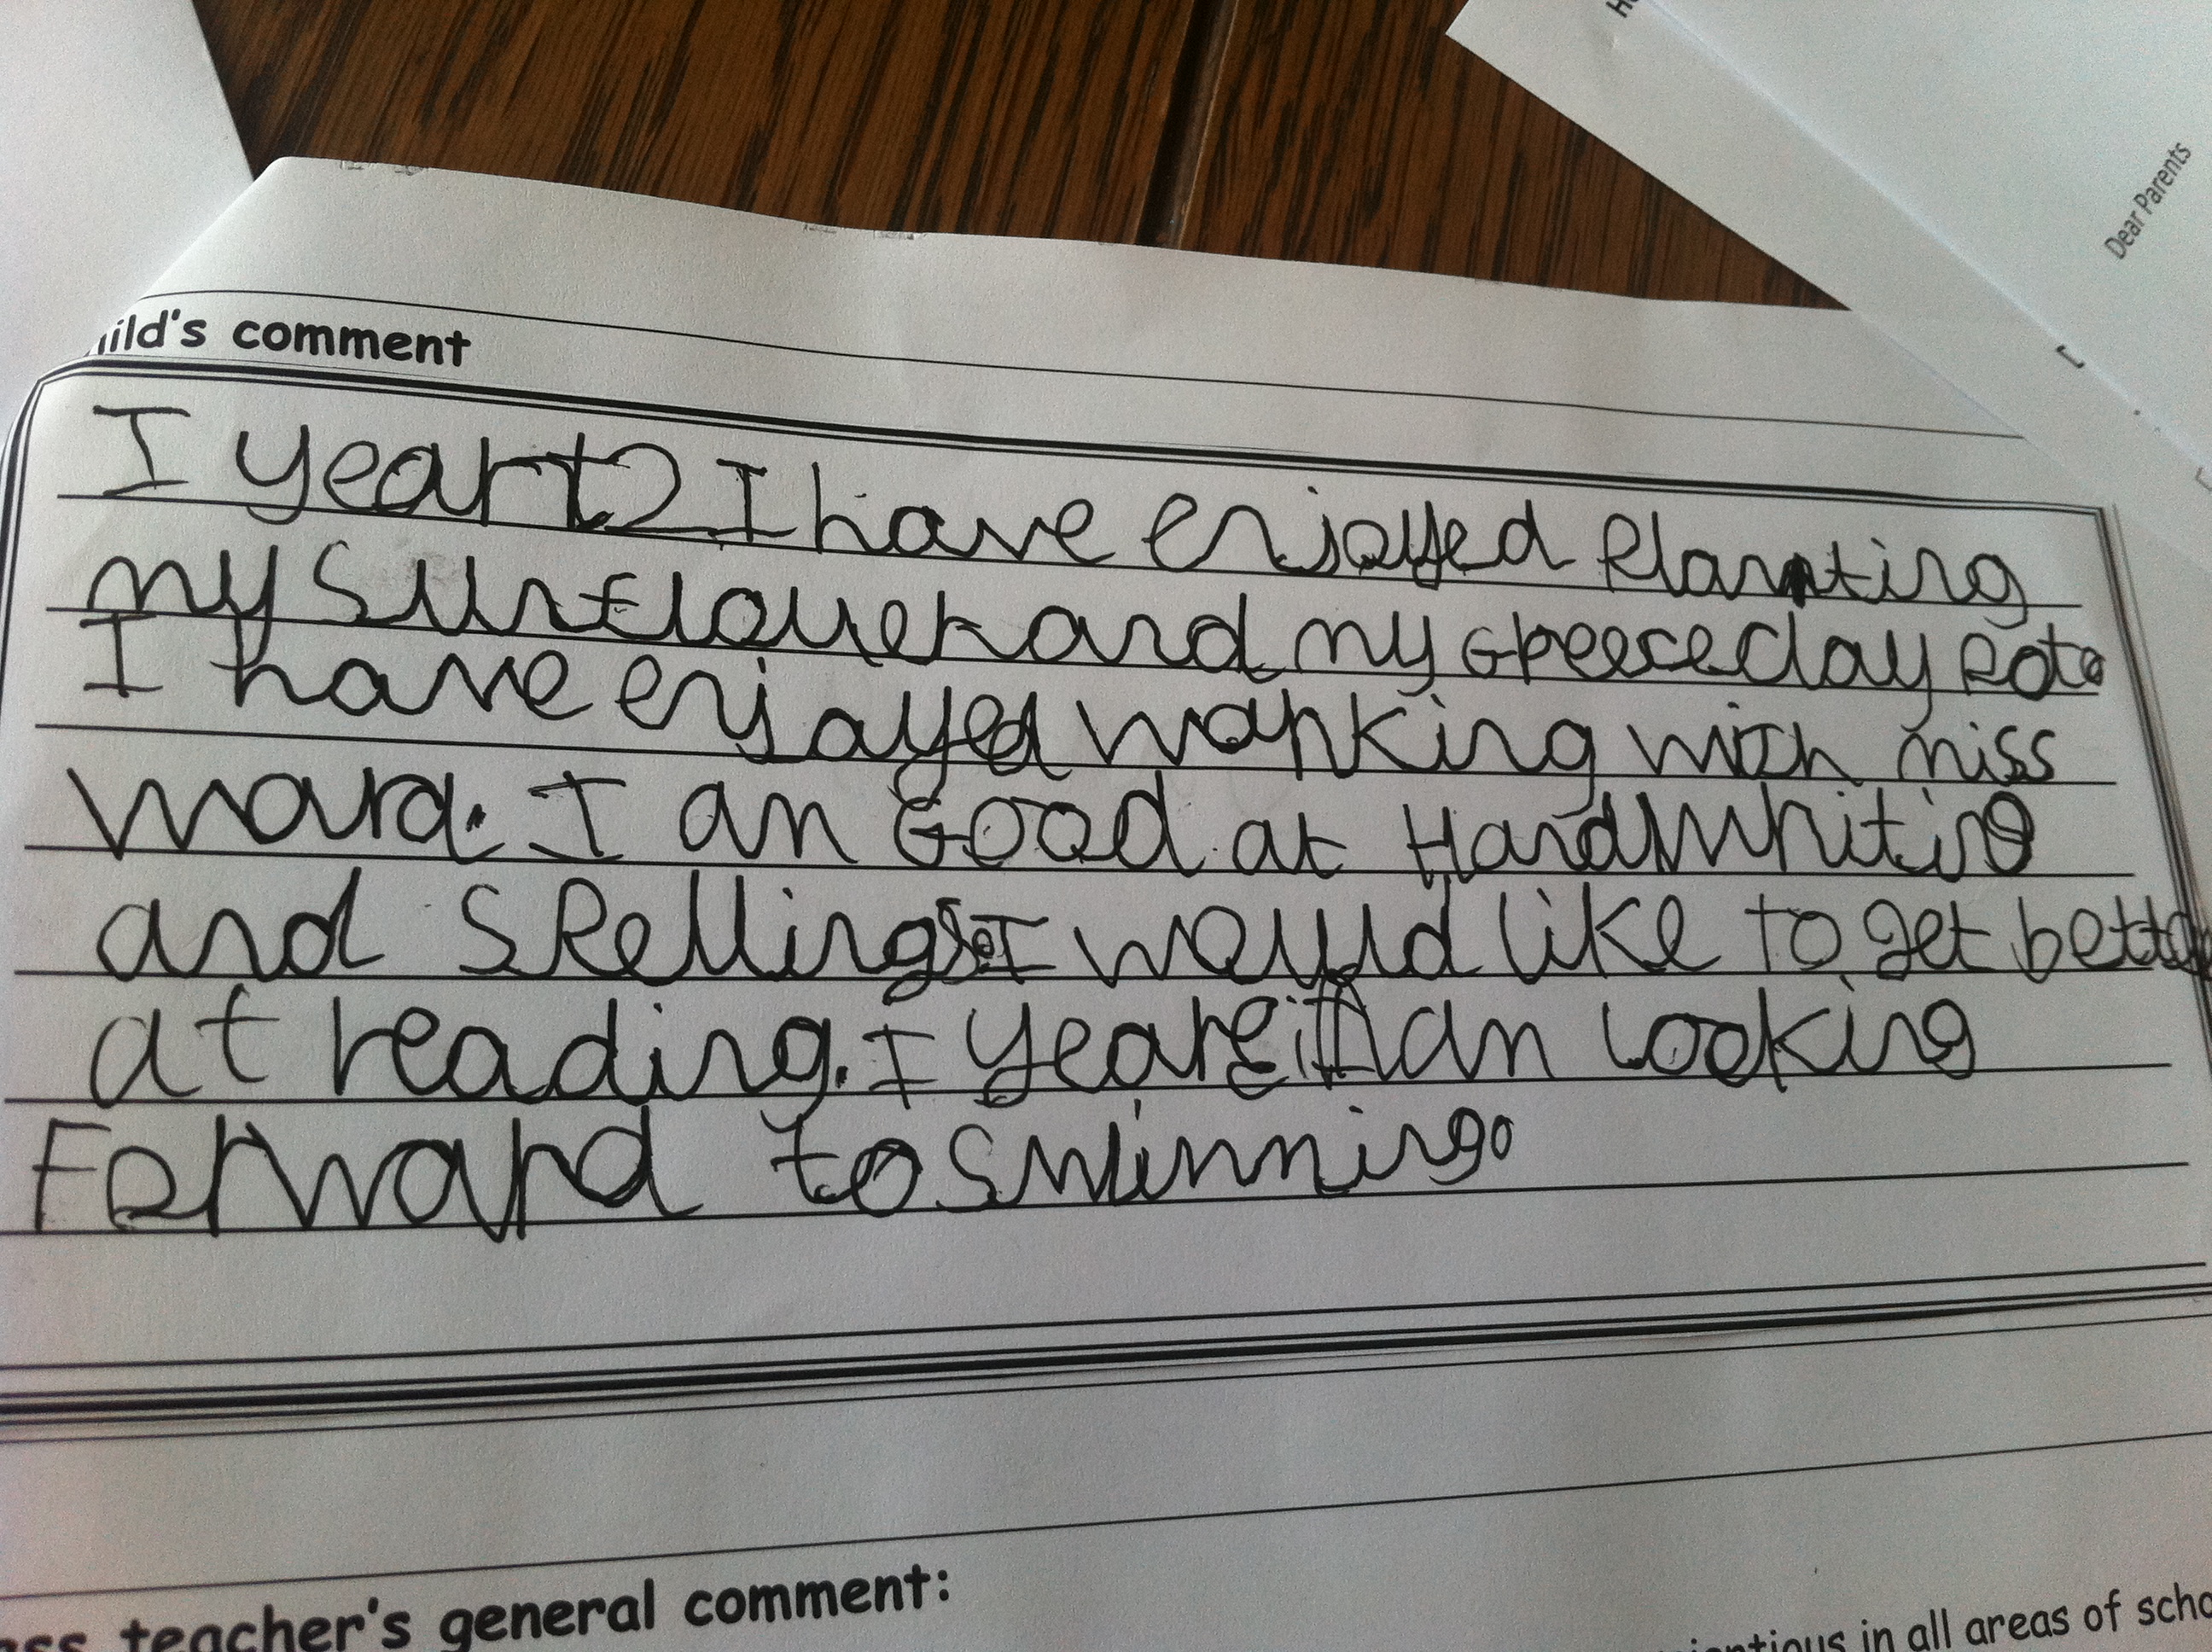 H
Dear Parents
ild's comment
I year 2 I have enjoyed planting
my sunflouer and my Greece clay pot
I have enjoyed working with miss
ward. I am Good at Handwriting
and spellings. I would like to get better
at reading. I year I am looking
Forward to swimming.
ass teacher's general comment:
ientious in all areas of scho